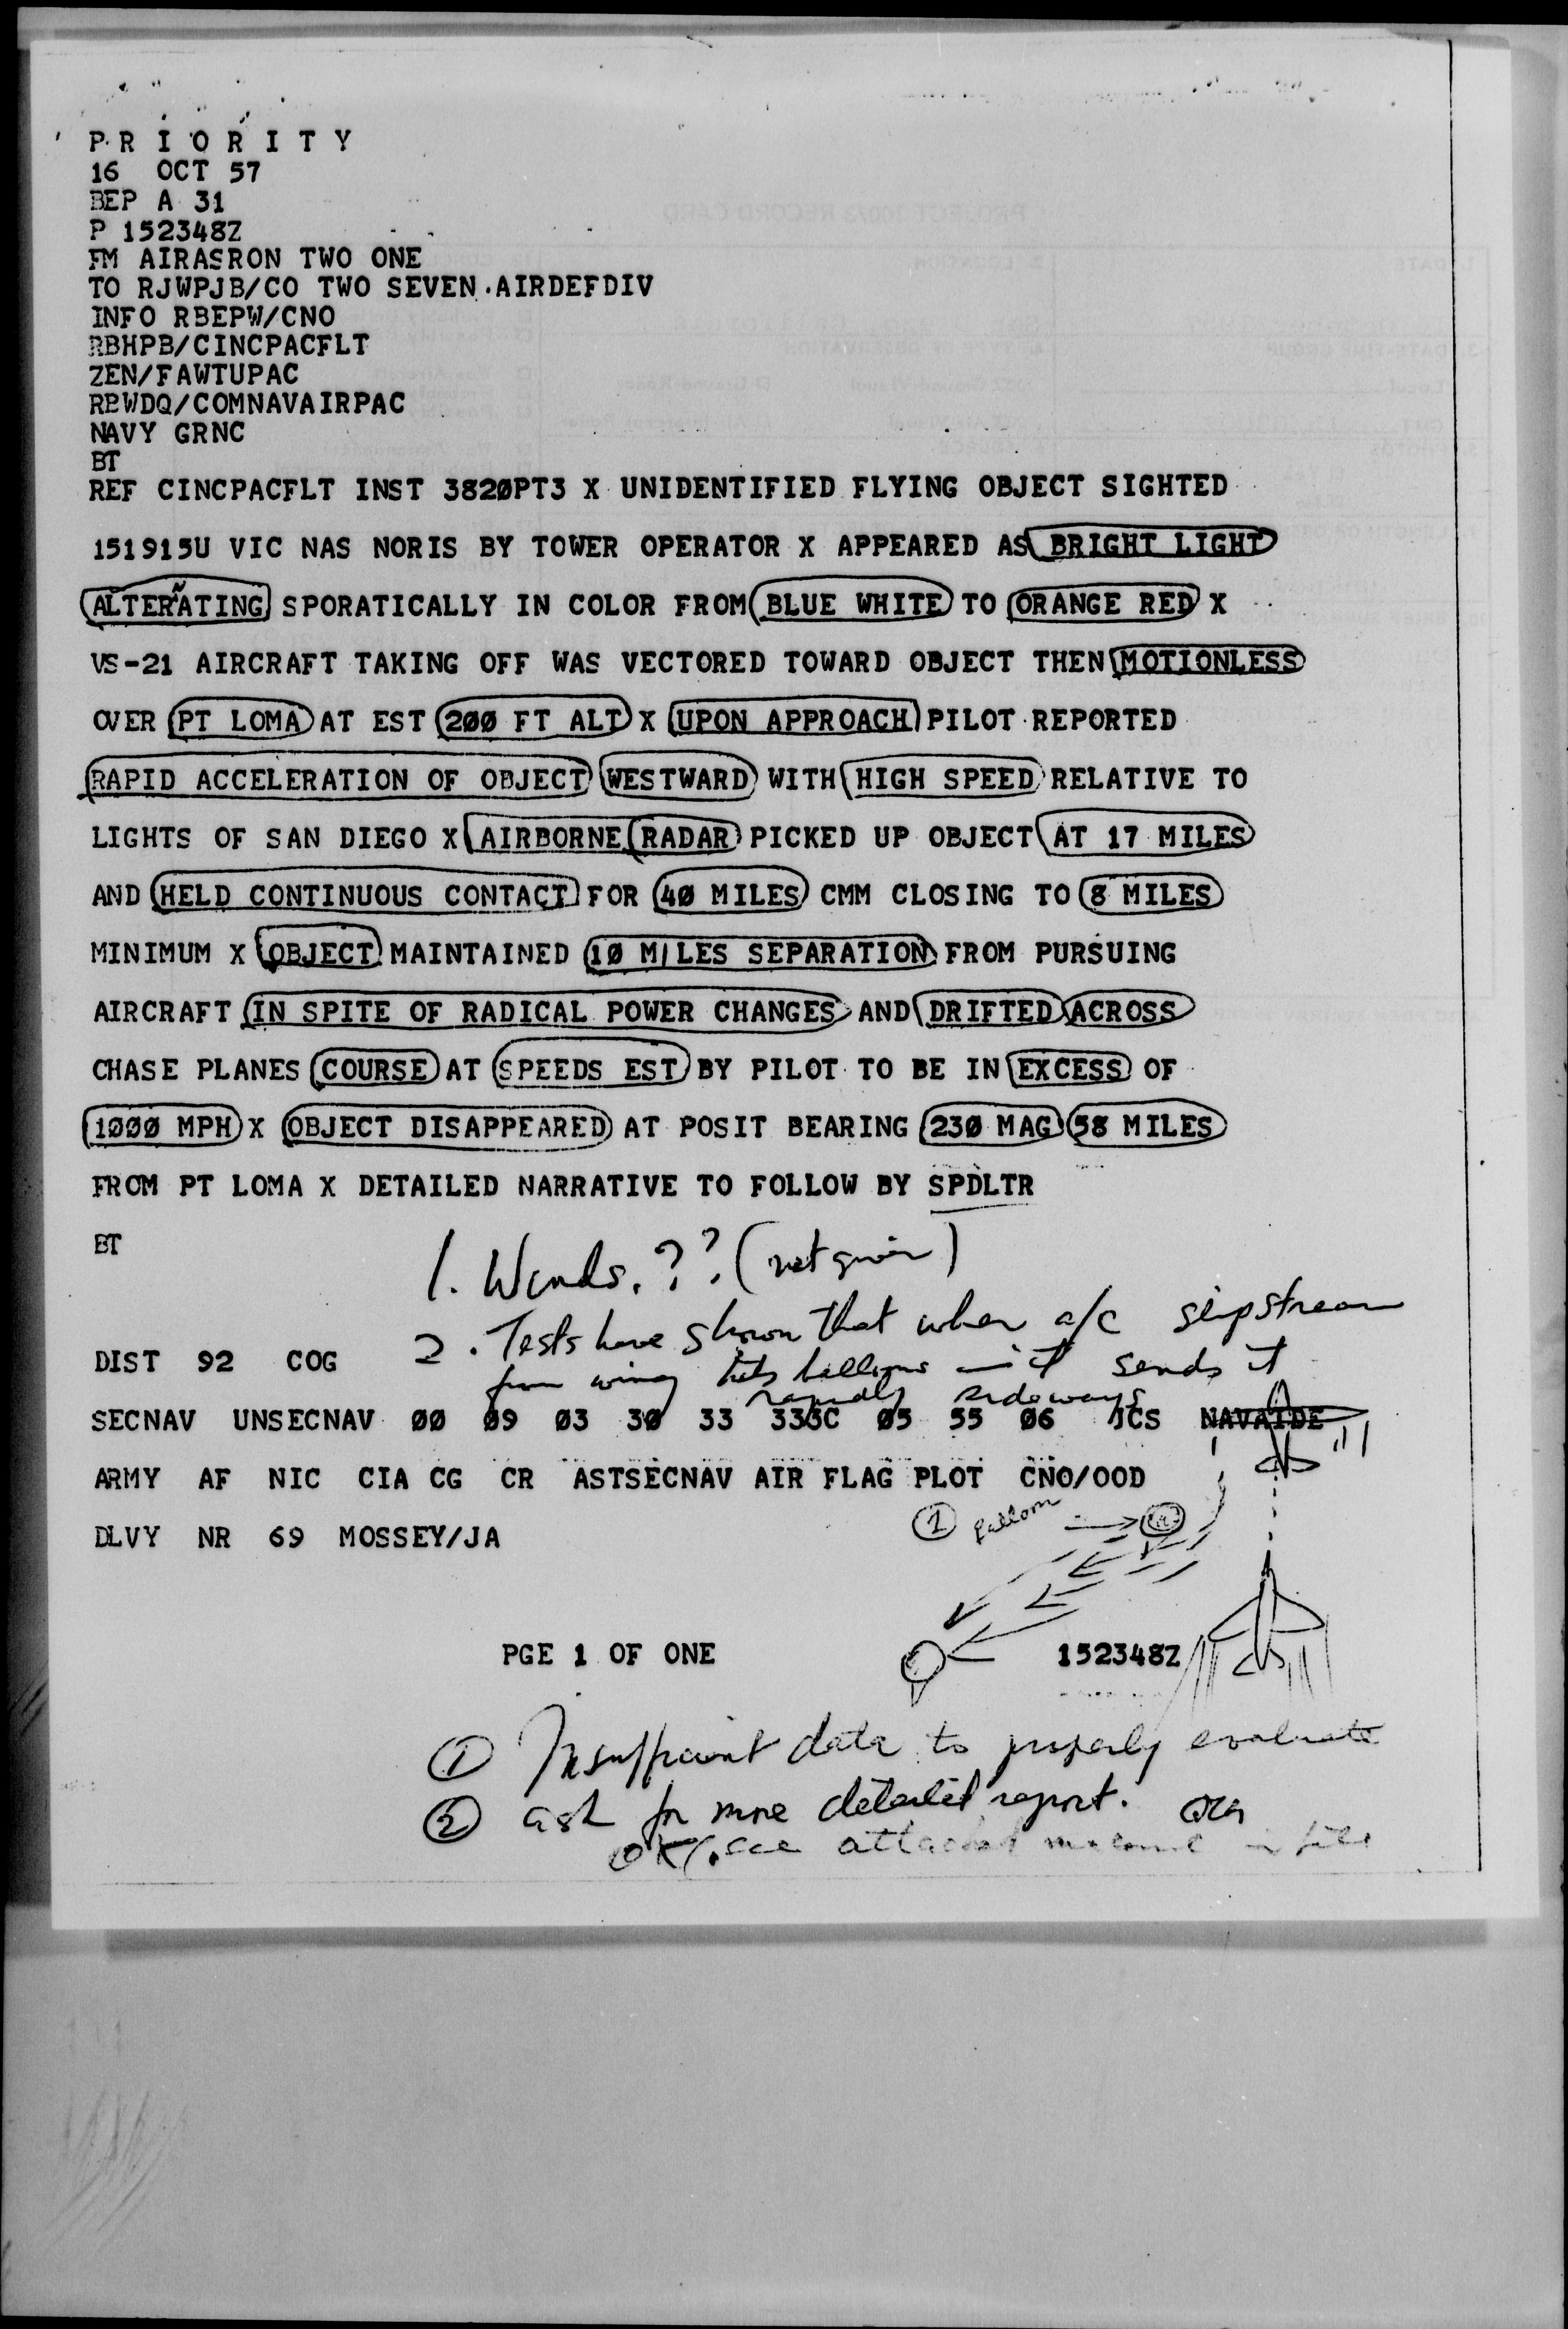 P R I O R I T Y
16 OCT 57
BEP A 31
P 152348Z
FM AIRASRON TWO ONE
TO RJWPJB/CO TWO SEVEN AIRDEFDIV
INFO RBEPW/CNO
RBHPB/CINCPACFLT
ZEN/FAWTUPAC
RBWDQ/COMNAVAIRPAC
NAVY GRNC
BT
REF CINCPACFLT INST 3820PT3 X UNIDENTIFIED FLYING OBJECT SIGHTED
151915U VIC NAS NORIS BY TOWER OPERATOR X APPEARED AS BRIGHT LIGHT
ALTERATING SPORATICALLY IN COLOR FROM BLUE WHITE TO ORANGE RED X
VS-21 AIRCRAFT TAKING OFF WAS VECTORED TOWARD OBJECT THEN MOTIONLESS
OVER PT LOMA AT EST 200 FT ALT X UPON APPROACH PILOT REPORTED
RAPID ACCELERATION OF OBJECT WESTWARD WITH HIGH SPEED RELATIVE TO
LIGHTS OF SAN DIEGO X AIRBORNE RADAR PICKED UP OBJECT AT 17 MILES
AND HELD CONTINUOUS CONTACT FOR 40 MILES CMM CLOSING TO 8 MILES
MINIMUM X OBJECT MAINTAINED 10 MILES SEPARATION FROM PURSUING
AIRCRAFT IN SPITE OF RADICAL POWER CHANGES AND DRIFTED ACROSS
CHASE PLANES COURSE AT SPEEDS EST BY PILOT TO BE IN EXCESS OF
1000 MPH X OBJECT DISAPPEARED AT POSIT BEARING 230 MAG 58 MILES
FROM PT LOMA X DETAILED NARRATIVE TO FOLLOW BY SPDLTR
BT
1. Winds.??.(not given)
2. Tests have shown that when a/c slipstream
from wing hits balloons – it sends it
rapidly sideways
DIST 92 COG
SECNAV UNSECNAV 00 09 03 30 33 333C 05 55 06 JCS NAVAIDE
ARMY AF NIC CIA CG CR ASTSECNAV AIR FLAG PLOT CNO/OOD
DLVY NR 69 MOSSEY/JA
1 balloon
PGE 1 OF ONE 152348Z
1 Insufficient data to properly evaluate
2 ask for more detailed report.
OK/. see attached in file